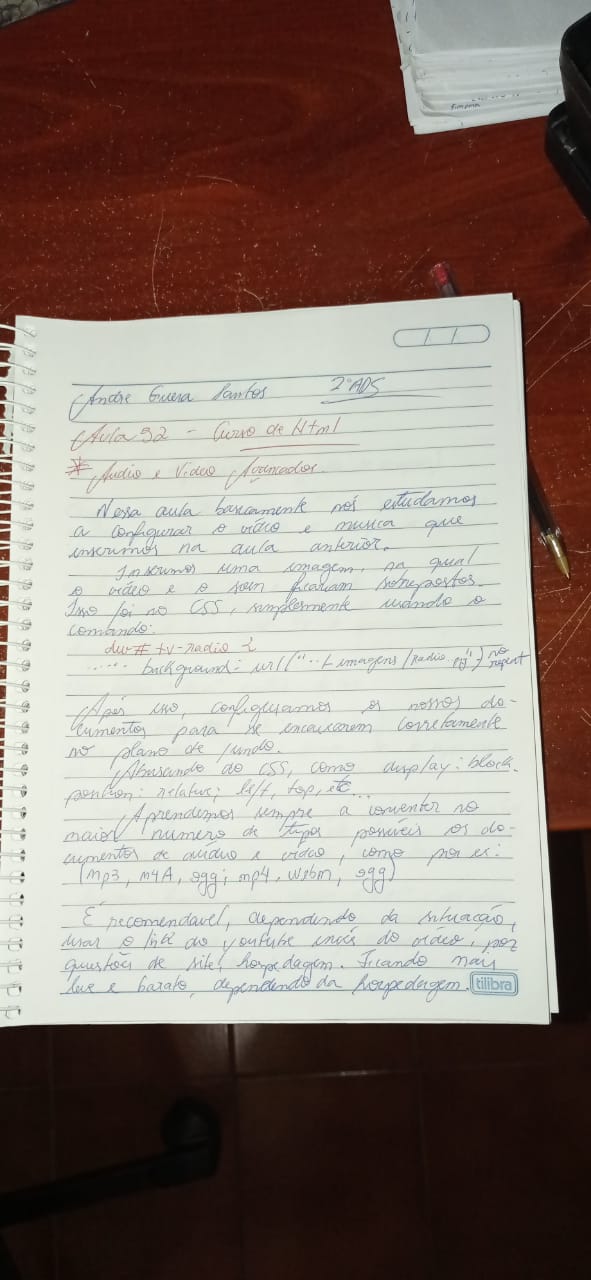 Andre Guera Santos 2º ADS
Aula 32 - Curso de Html
* Audio e Video Avancados.
Nessa aula basicamente nós estudamos
a configurar o vídeo e musica que
inserimos na aula anterior.
Inserimos uma imagem, na qual
o vídeo e o som ficariam sobrepostos.
Isso foi no CSS, simplesmente usando o
comando:
div# tv-radio {
...... background: url("../imagens/radio.") no
repeat
Após isso, configuramos os nossos do-
cumentos para se encaixarem corretamente
no plano de fundo.
Abusando do CSS, como display: block,
position: relative; left, top, etc...
Aprendemos sempre a converter no
maior numero de tipos possiveis os do-
cumentos de audio e video, como por ex:
(mp3, m4A, ogg; mp4, webm, ogg)
É recomendavel, dependendo da situação,
usar o link do youtube invés do video, por
questões de site/hospedagem. Ficando mais
leve e barato, dependendo da hospedagem.
tilibra